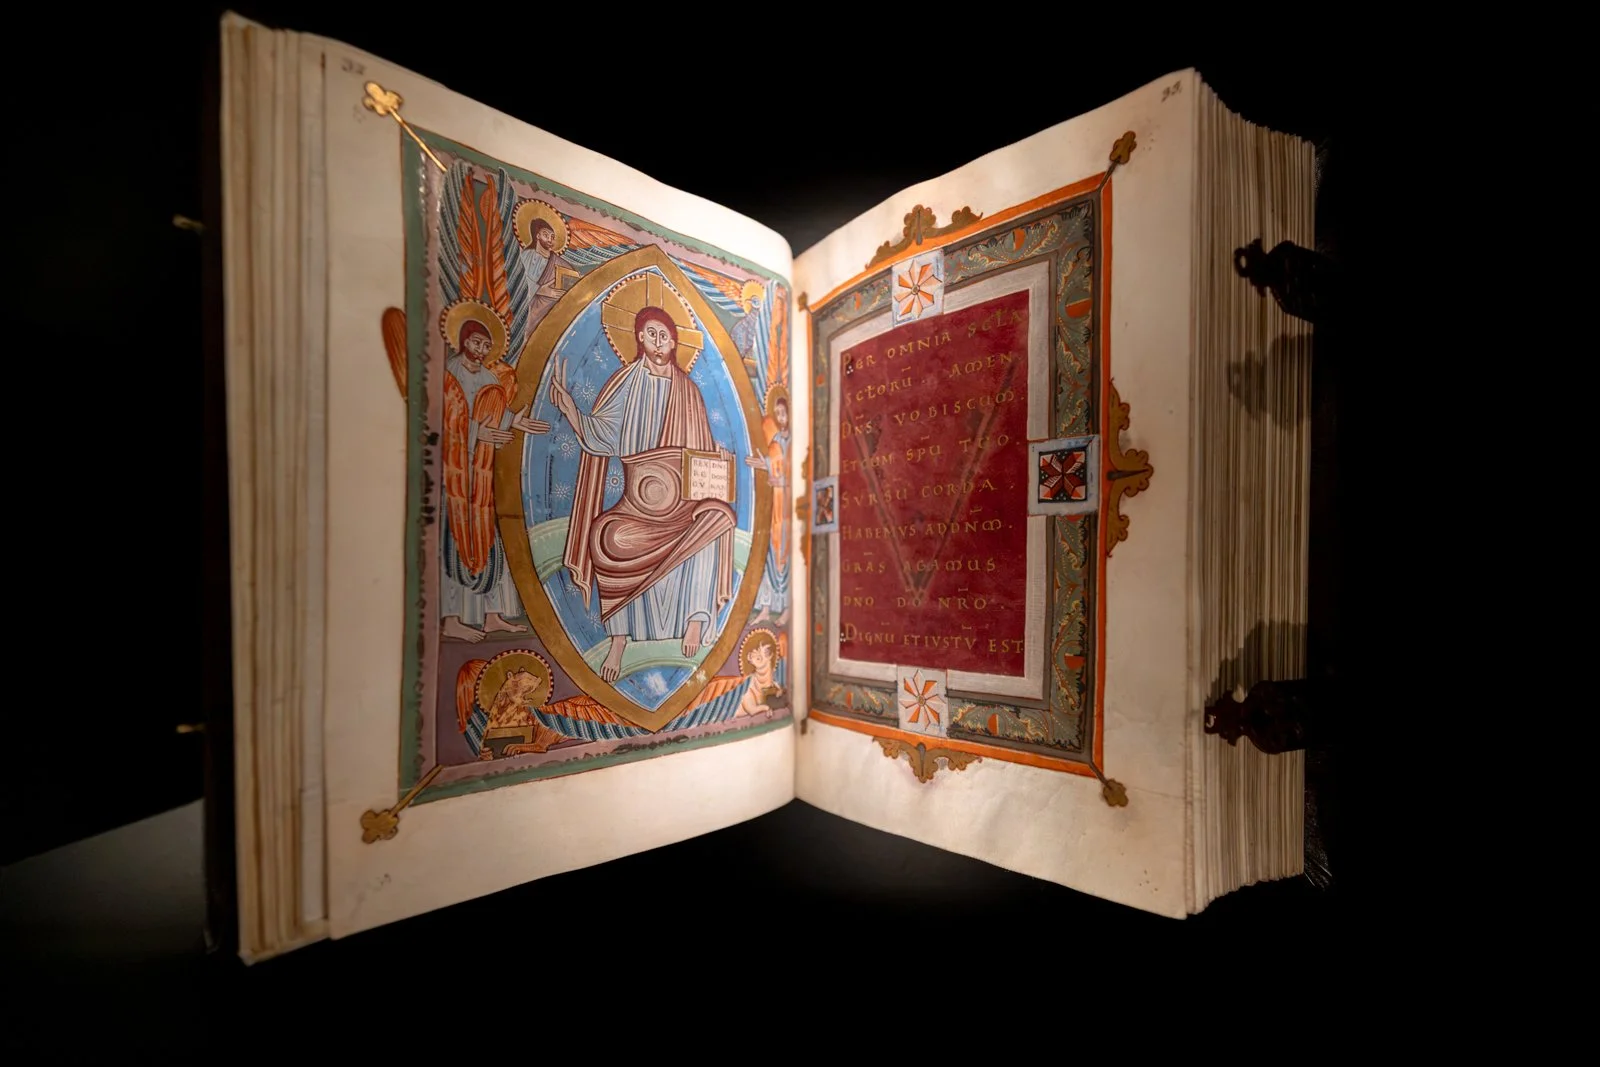 REX DNS
PER OMNIA SCLA
SCLORU. AMEN.
DNS VOBISCUM.
ET CUM SPU TUO.
SVRSU CORDA.
HABEMVS ADDNM.
GRAS AGAMUS
DNO DO NRO.
DIGNU ETIVSTV EST